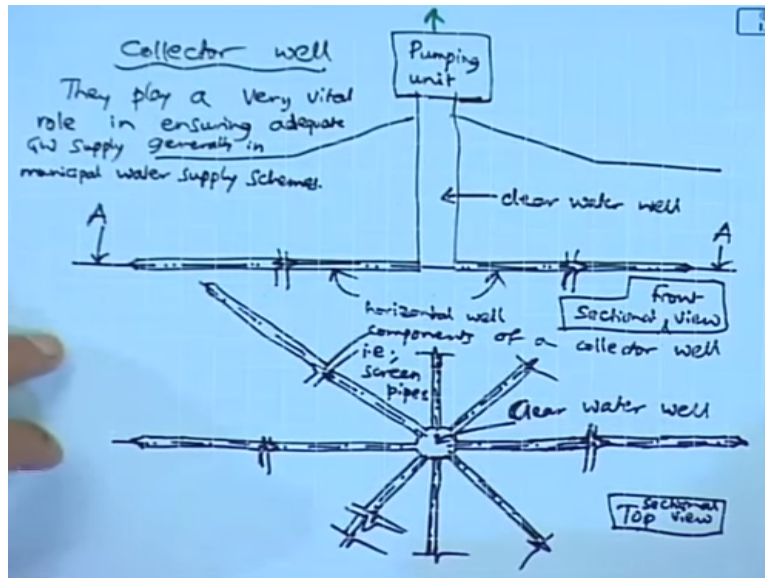 Collector well
They play a very vital
role in ensuring adequate
GW supply generally in
municipal water supply schemes.
Pumping
unit
clear water well
A
A
Front
sectional view
horizontal well
components of a collector well
i.e;
screen
pipes
Clear water well
sectional
Top view